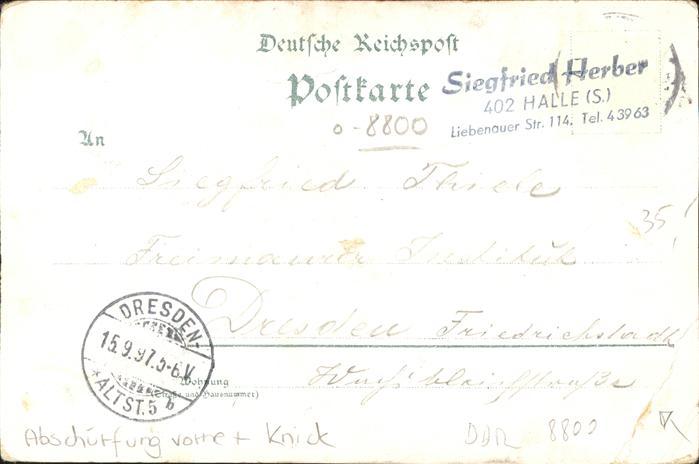 Deutsche Reichspost
Postkarte
Siegfried Herber
402 HALLE (S.)
Liebenauer Str. 114. Tel. 43963
o-8800
An
Siegfried Thiele
35
Freimaurer Institut
Dresden Friedrichstadt
DRESDEN-
15.9.97.5-6V.
*ALTST.5 b
Wohnung
(Straße und Hausnummer)
Wachsbleichstraße
Abschürfung vorne + Knick
DDR 8800